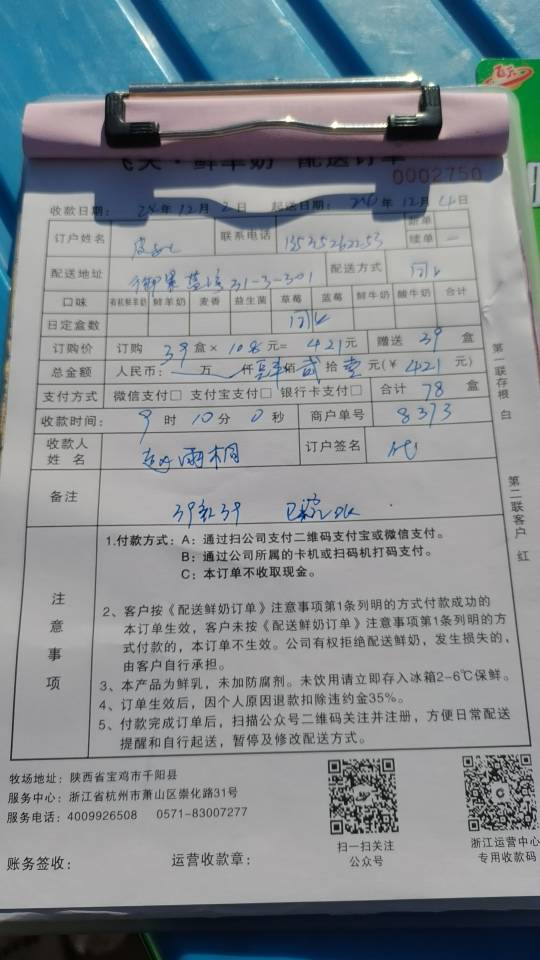 飞天·鲜羊奶 配送订单
0002750
收款日期: 年12月2日 起送日期: 年12月4日
订户姓名 联系电话 新单 续单
配送地址 31-3-301 配送方式
口味 有机鲜羊奶 鲜羊奶 麦香 益生菌 草莓 蓝莓 鲜牛奶 酸牛奶 合计
日定盒数
订购价 订购 39 盒× 10.8 元= 421元 赠送 39 盒
总金额 人民币: 万 仟 肆佰 贰拾 壹元(￥ 421 元)
支付方式 微信支付□ 支付宝支付□ 银行卡支付□ 合计 78 盒
收款时间: 9 时 10分 0 秒 商户单号 8373
收款人姓名 雨桐 订户签名 代
备注 39 39
注意事项
1.付款方式: A: 通过扫公司支付二维码支付宝或微信支付。
B: 通过公司所属的卡机或扫码机打码支付。
C: 本订单不收取现金。
2、客户按《配送鲜奶订单》注意事项第1条列明的方式付款成功的
本订单生效，客户未按《配送鲜奶订单》注意事项第1条列明的方
式付款的，本订单不生效。公司有权拒绝配送鲜奶，发生损失的，
由客户自行承担。
3、本产品为鲜乳，未加防腐剂。未饮用请立即存入冰箱2-6℃保鲜。
4、订单生效后，因个人原因退款扣除违约金35%。
5、付款完成订单后，扫描公众号二维码关注并注册，方便日常配送
提醒和自行起送，暂停及修改配送方式。
第一联存根 白
第二联客户 红
牧场地址: 陕西省宝鸡市千阳县
服务中心: 浙江省杭州市萧山区崇化路31号
服务电话: 4009926508 0571-83007277
扫一扫关注
公众号
浙江运营中心
专用收款码
账务签收: 运营收款章: